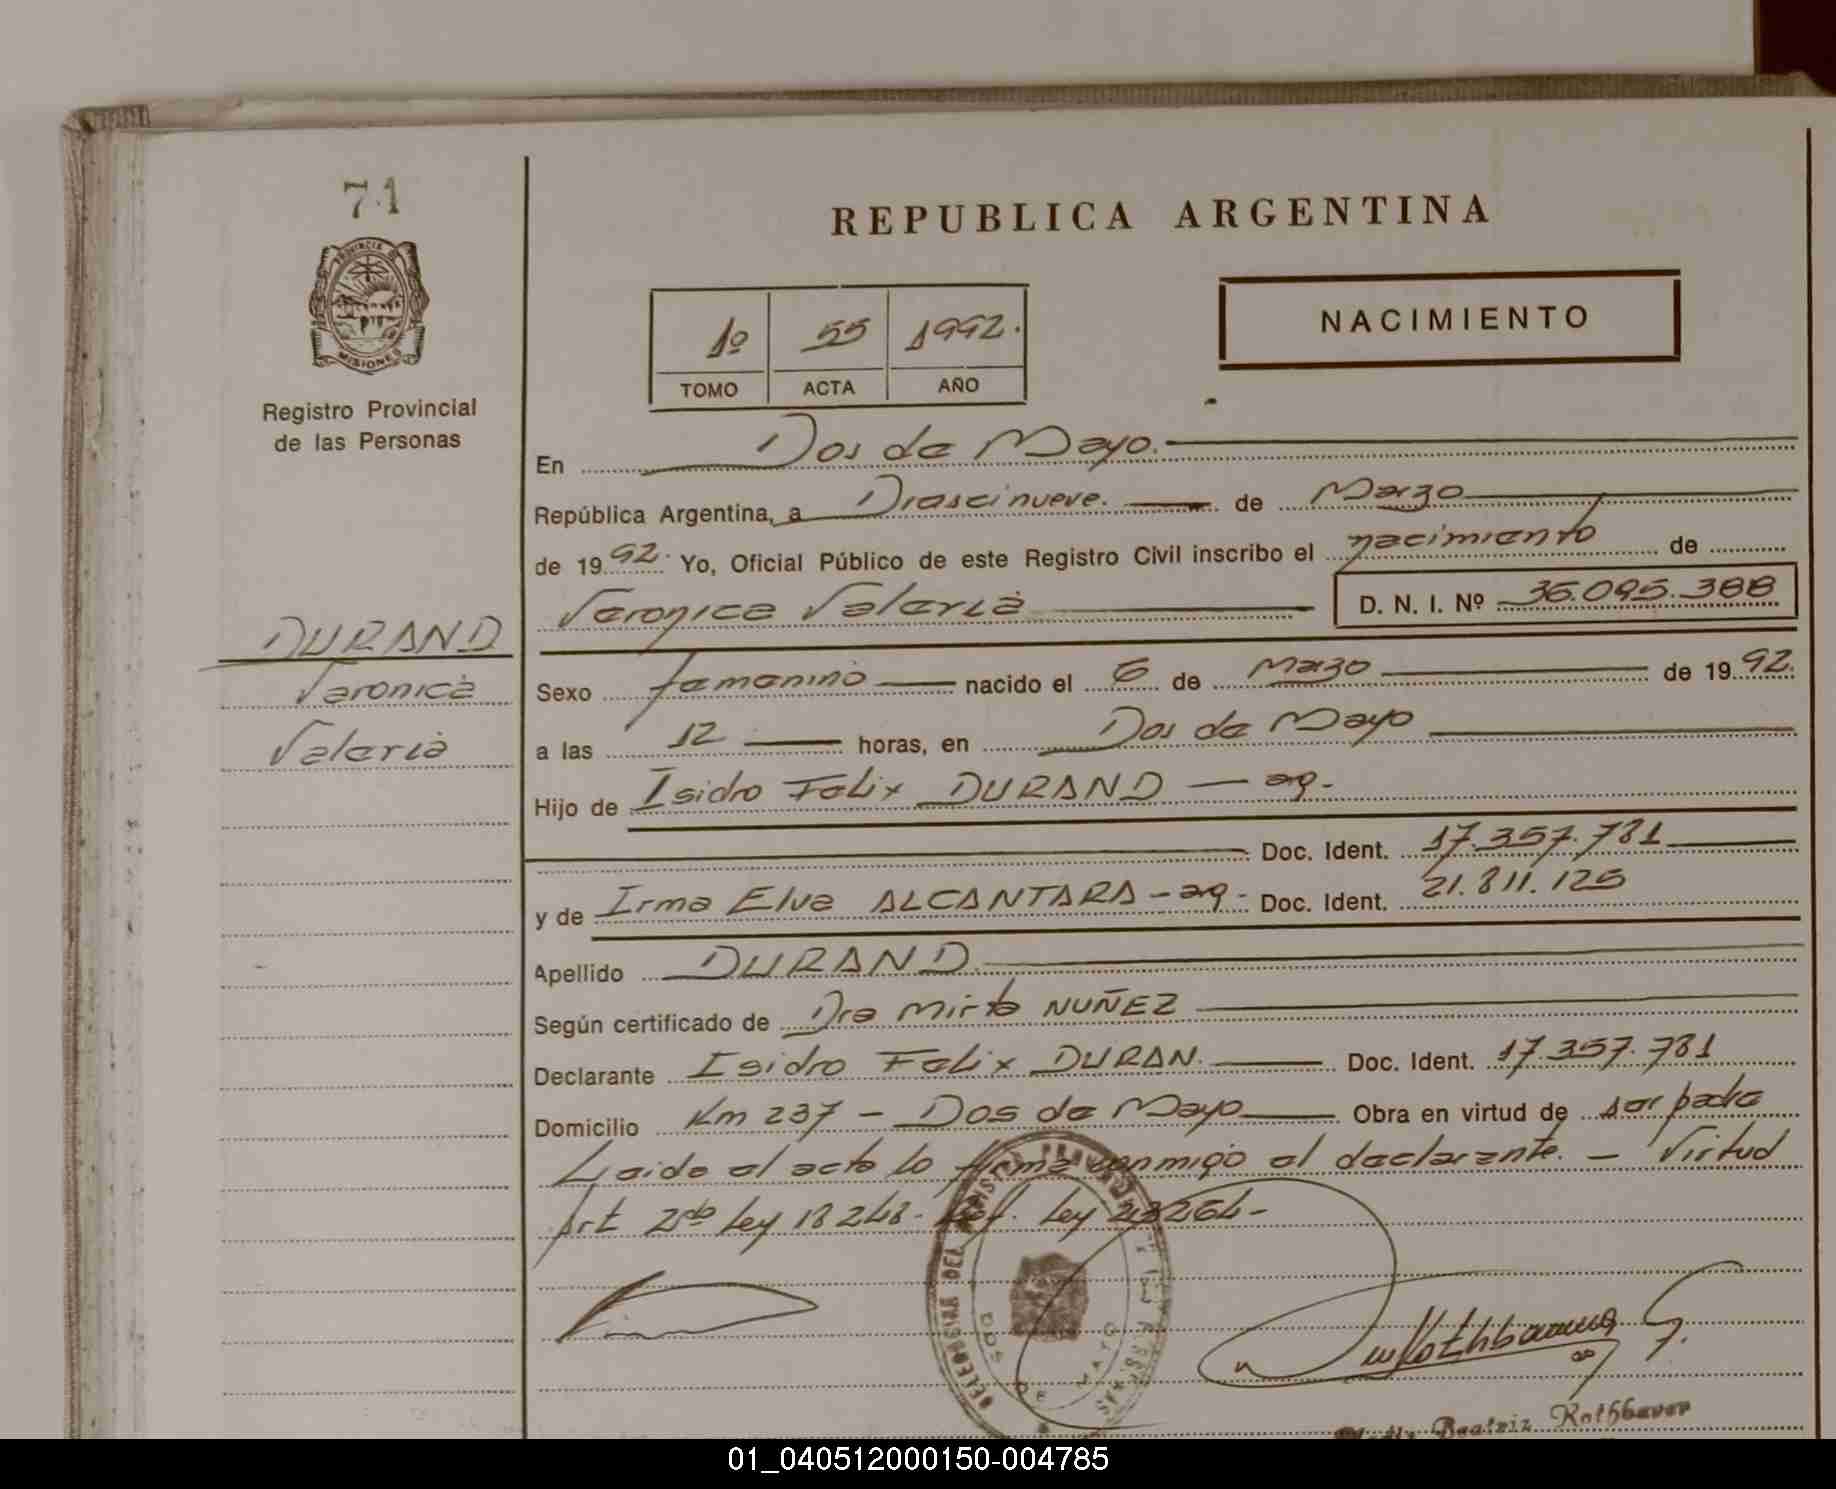 71
PROVINCIA DE
MISIONES
Registro Provincial
de las Personas
DURAND
Veronica
Valeria
REPUBLICA ARGENTINA
1º 55 1992.
TOMO ACTA AÑO
NACIMIENTO
En Dos de Mayo.
República Argentina, a Diescinueve. de Marzo
de 1992. Yo, Oficial Público de este Registro Civil inscribo el nacimiento de
Veronica Valeria D. N. I. Nº 36.095.388
Sexo femenino nacido el 6 de Marzo de 1992.
a las 12 horas, en Dos de Mayo
Hijo de Isidro Felix DURAND — arg.
Doc. Ident. 17.357.781
y de Irma Elva ALCANTARA - arg - Doc. Ident. 21.811.125
Apellido DURAND.
Según certificado de Dra Mirta NUÑEZ
Declarante Isidro Felix DURAN. Doc. Ident. 17.357.781
Domicilio Km 237 - Dos de Mayo Obra en virtud de ser padre
Leida el acta lo firma conmigo el declarante. - Virtud
Art 2do Ley 18248. Ley 23264-
DOS DE MAYO
Rothbauer
Beatriz Rothbauer
01_040512000150-004785